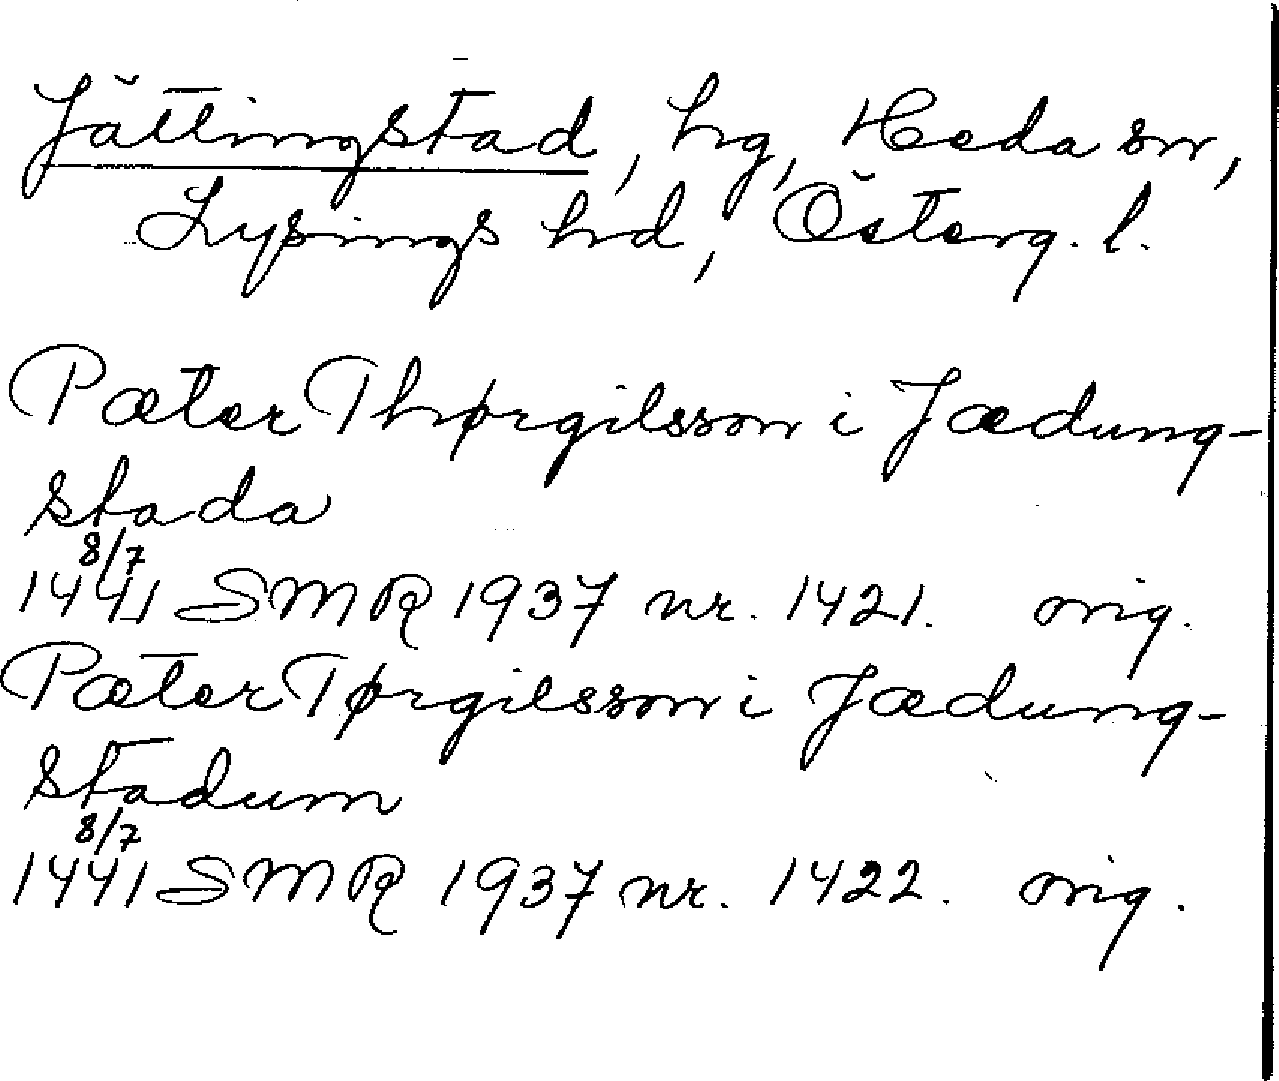 Jättingstad, hg, Heda sn,
Lysings hd, Österg. l.
Pæter Thørgilsson i Jædung-
stada
8/7
1441 SMR 1937 nr. 1421. orig.
Pæter Tørgilsson i Jædung-
stadum
8/7
1441 SMR 1937 nr. 1422. orig.